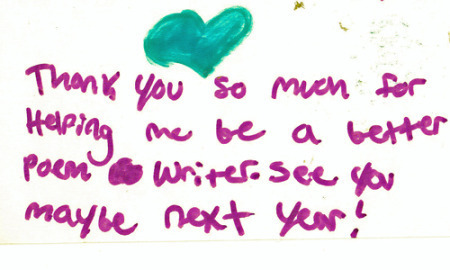 Thank you so much for
Helping me be a better
poem writer. See you
maybe next year!